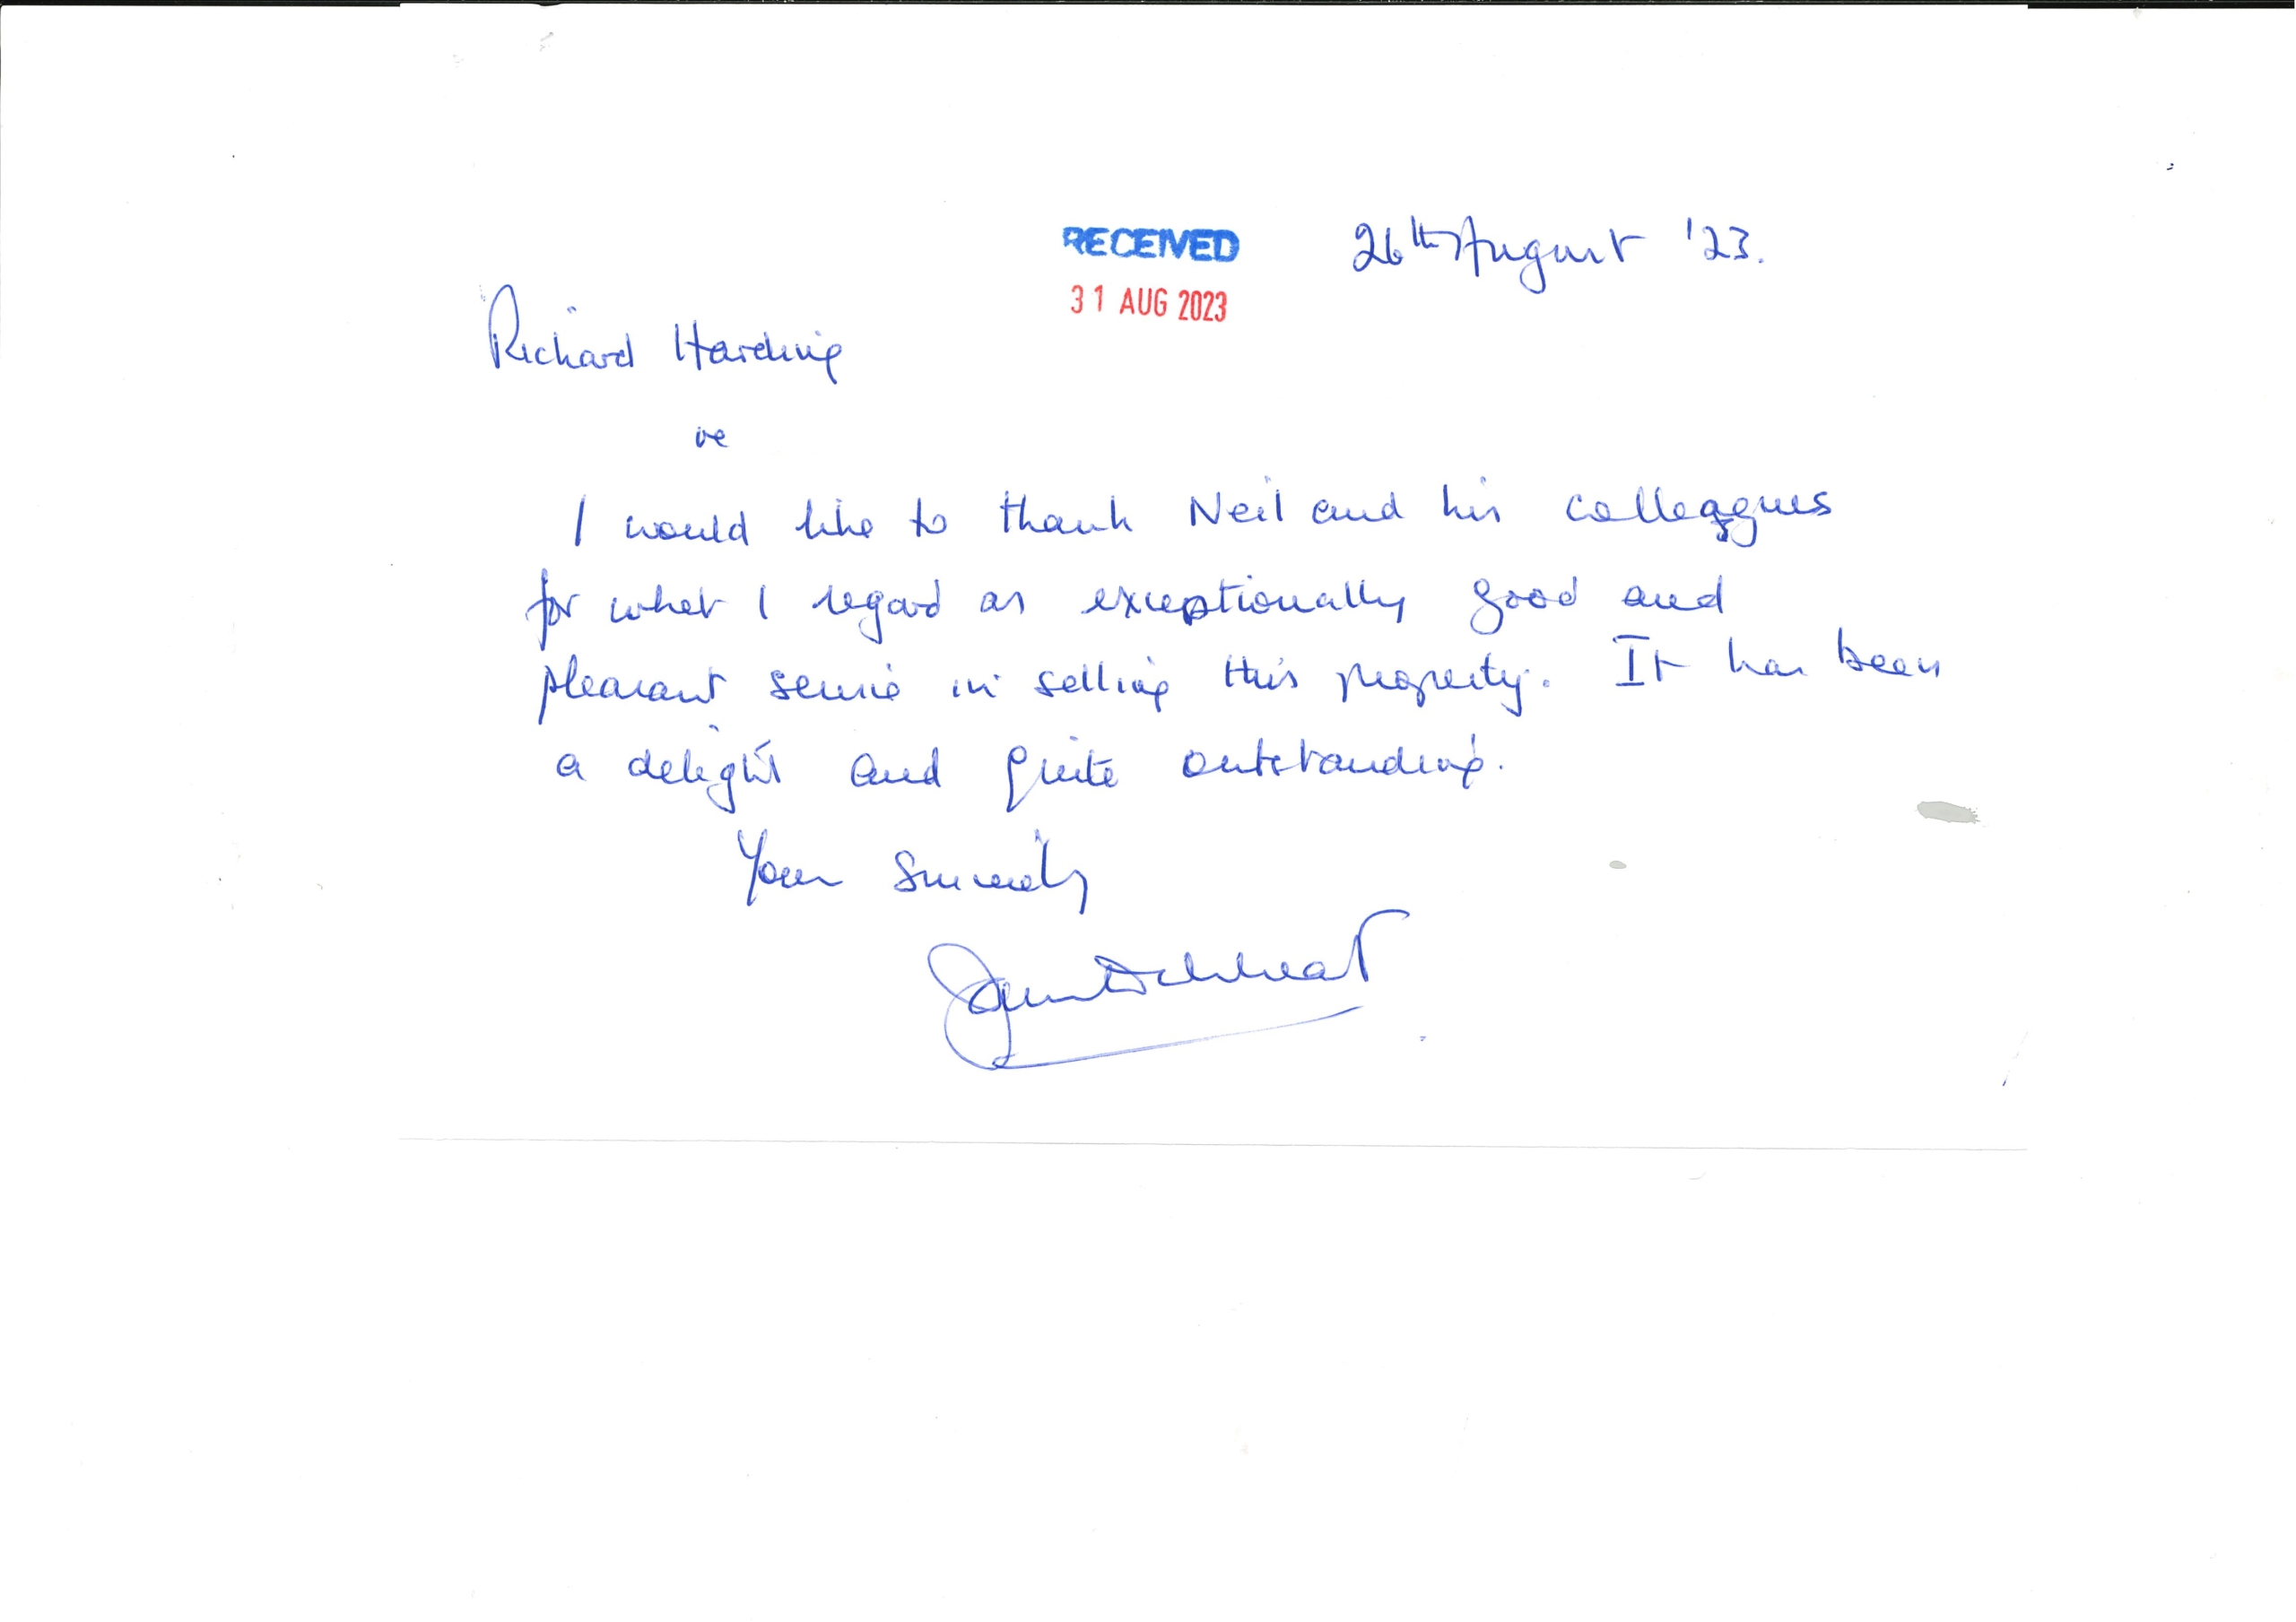 RECEIVED 26th August '23.
31 AUG 2023
Richard Harding
re
I would like to thank Neil and his colleagues
for what I regard as exceptionally good and
pleasant service in selling this property. It has been
a delight and quite outstanding.
Yours Sincerely